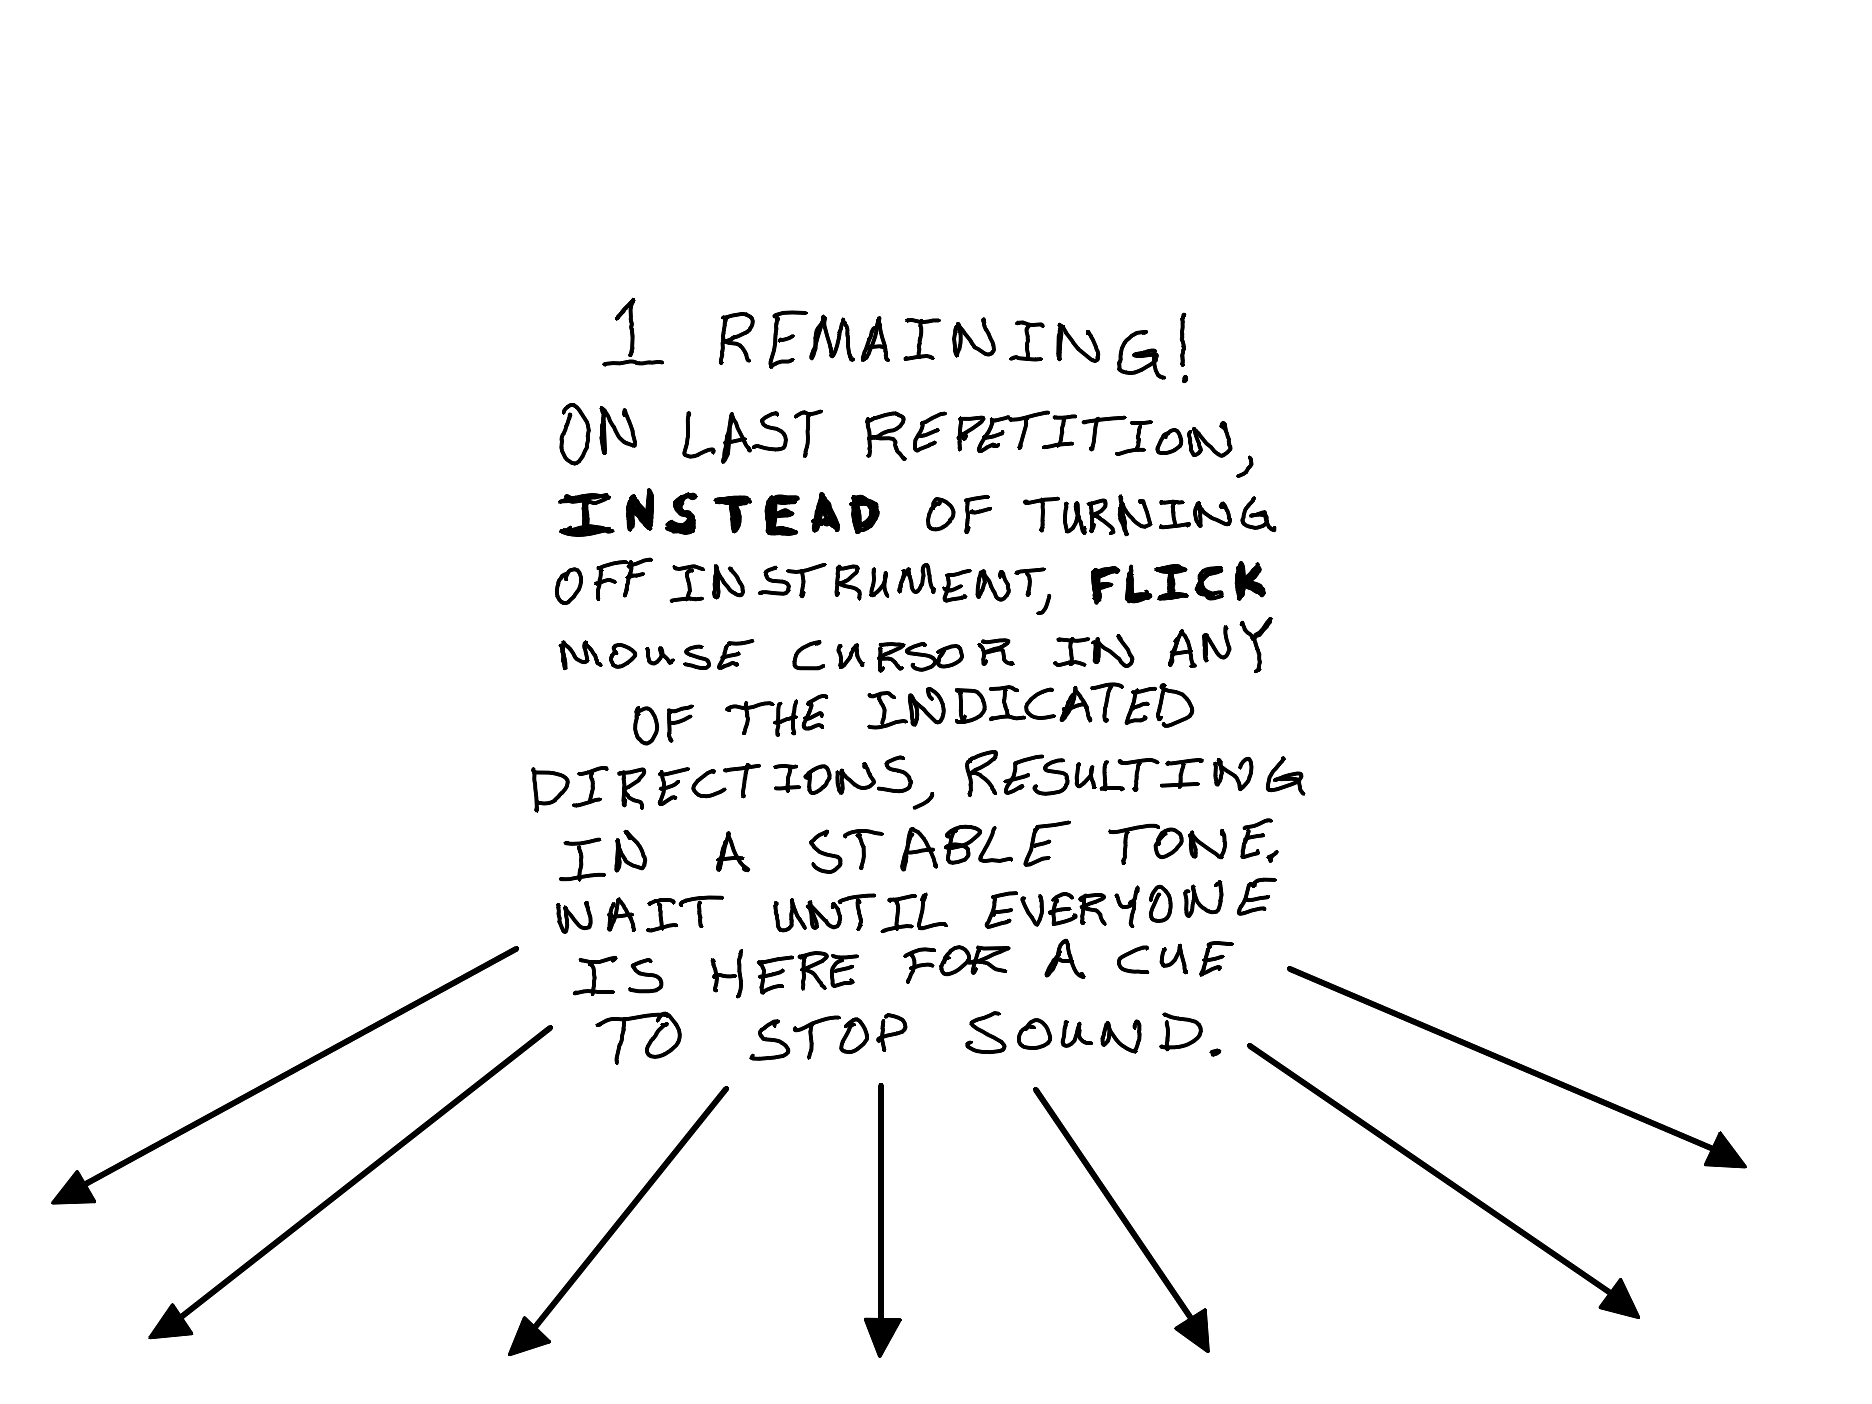 1 REMAINING!
ON LAST REPETITION,
INSTEAD OF TURNING
OFF INSTRUMENT, FLICK
MOUSE CURSOR IN ANY
OF THE INDICATED
DIRECTIONS, RESULTING
IN A STABLE TONE.
WAIT UNTIL EVERYONE
IS HERE FOR A CUE
TO STOP SOUND.